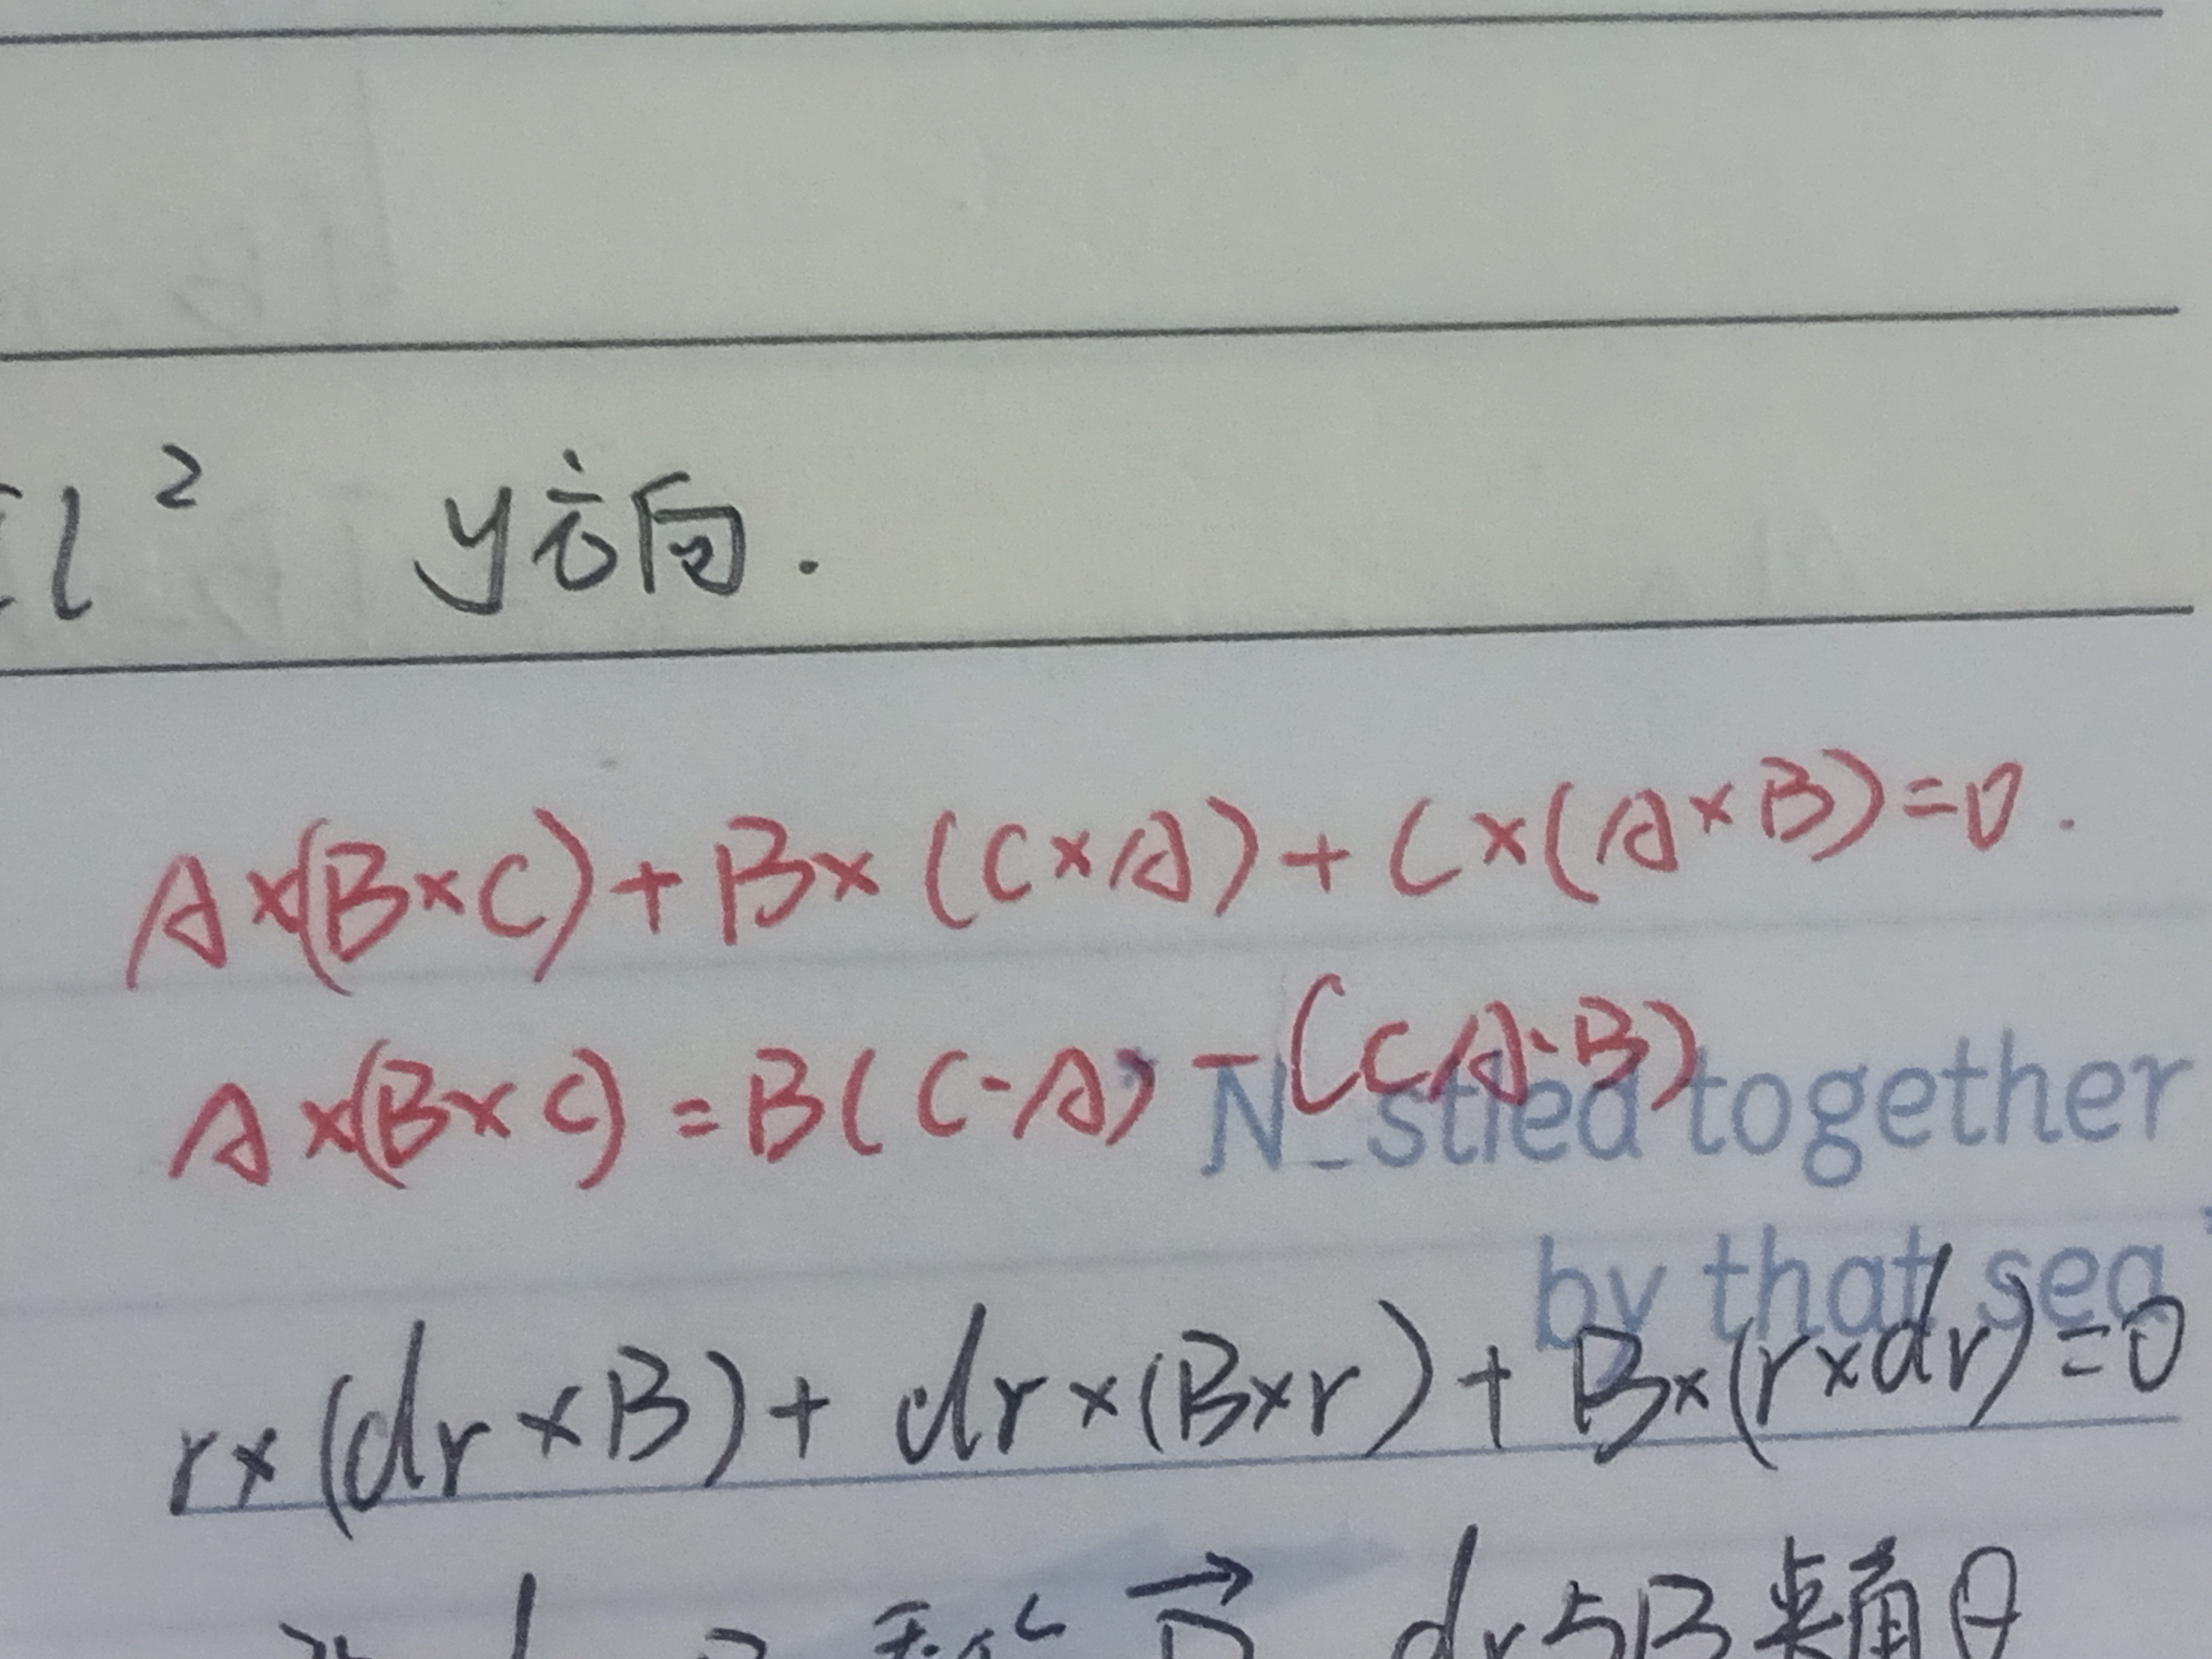 l² y方向.
A×(B×C)+B×(C×A)+C×(A×B)=0.
A×(B×C)=B(C·A)-(CA·B)
N_stled together
by that sea
r×(dr×B)+dr×(B×r)+B×(r×dr)=0
dr与B夹角θ